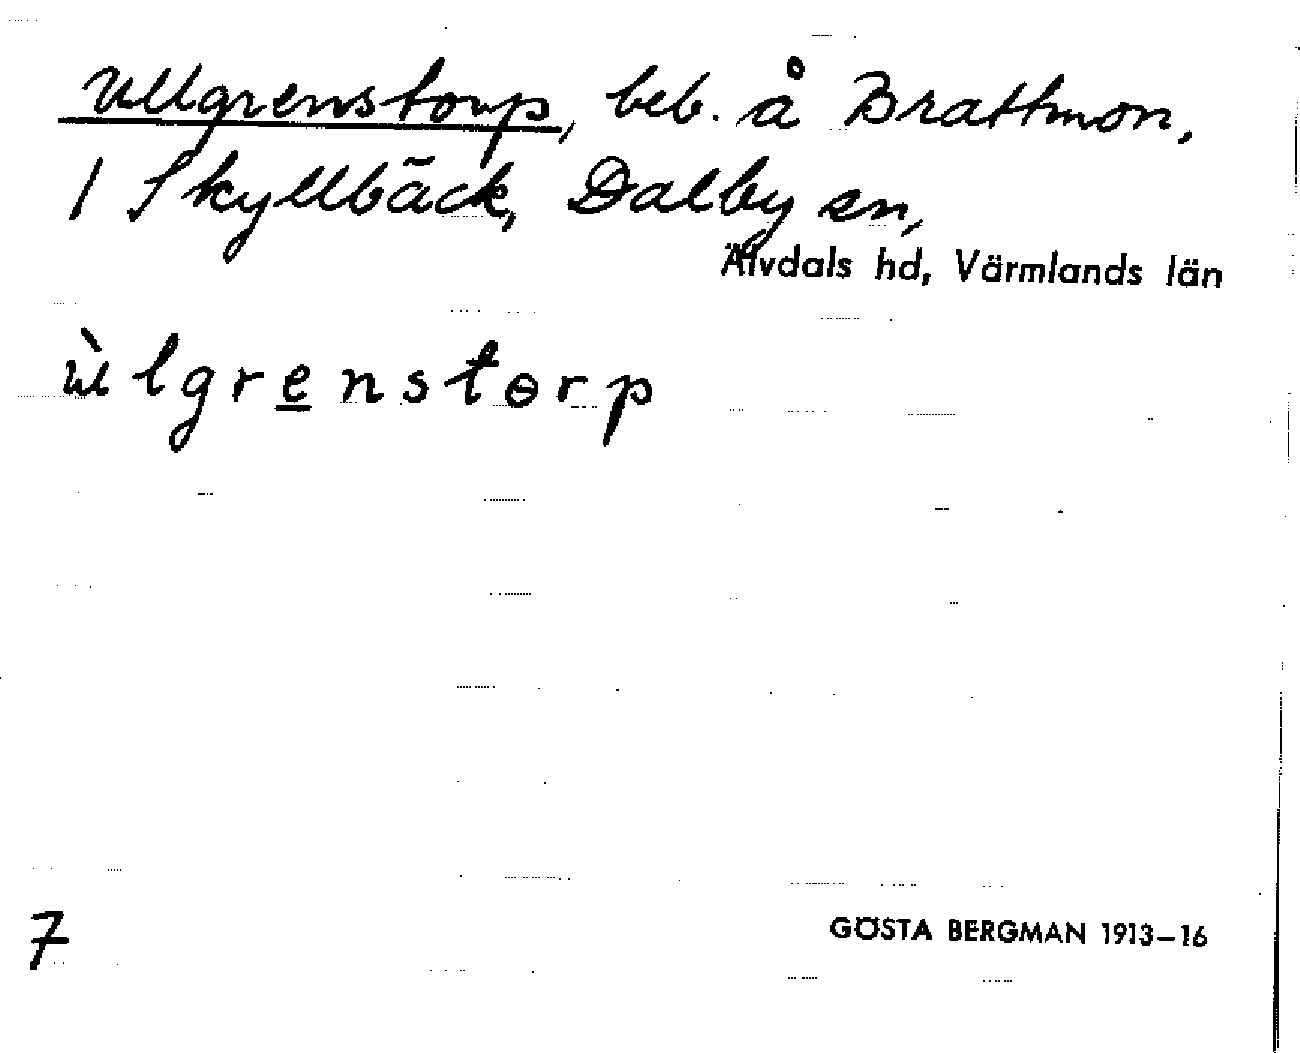 Ullgrenstorp, beb. å Brattmon,
1 Skyllbäck, Dalby sn,
Älvdals hd, Värmlands län
ùlgrenstɵrp
7
GÖSTA BERGMAN 1913–16